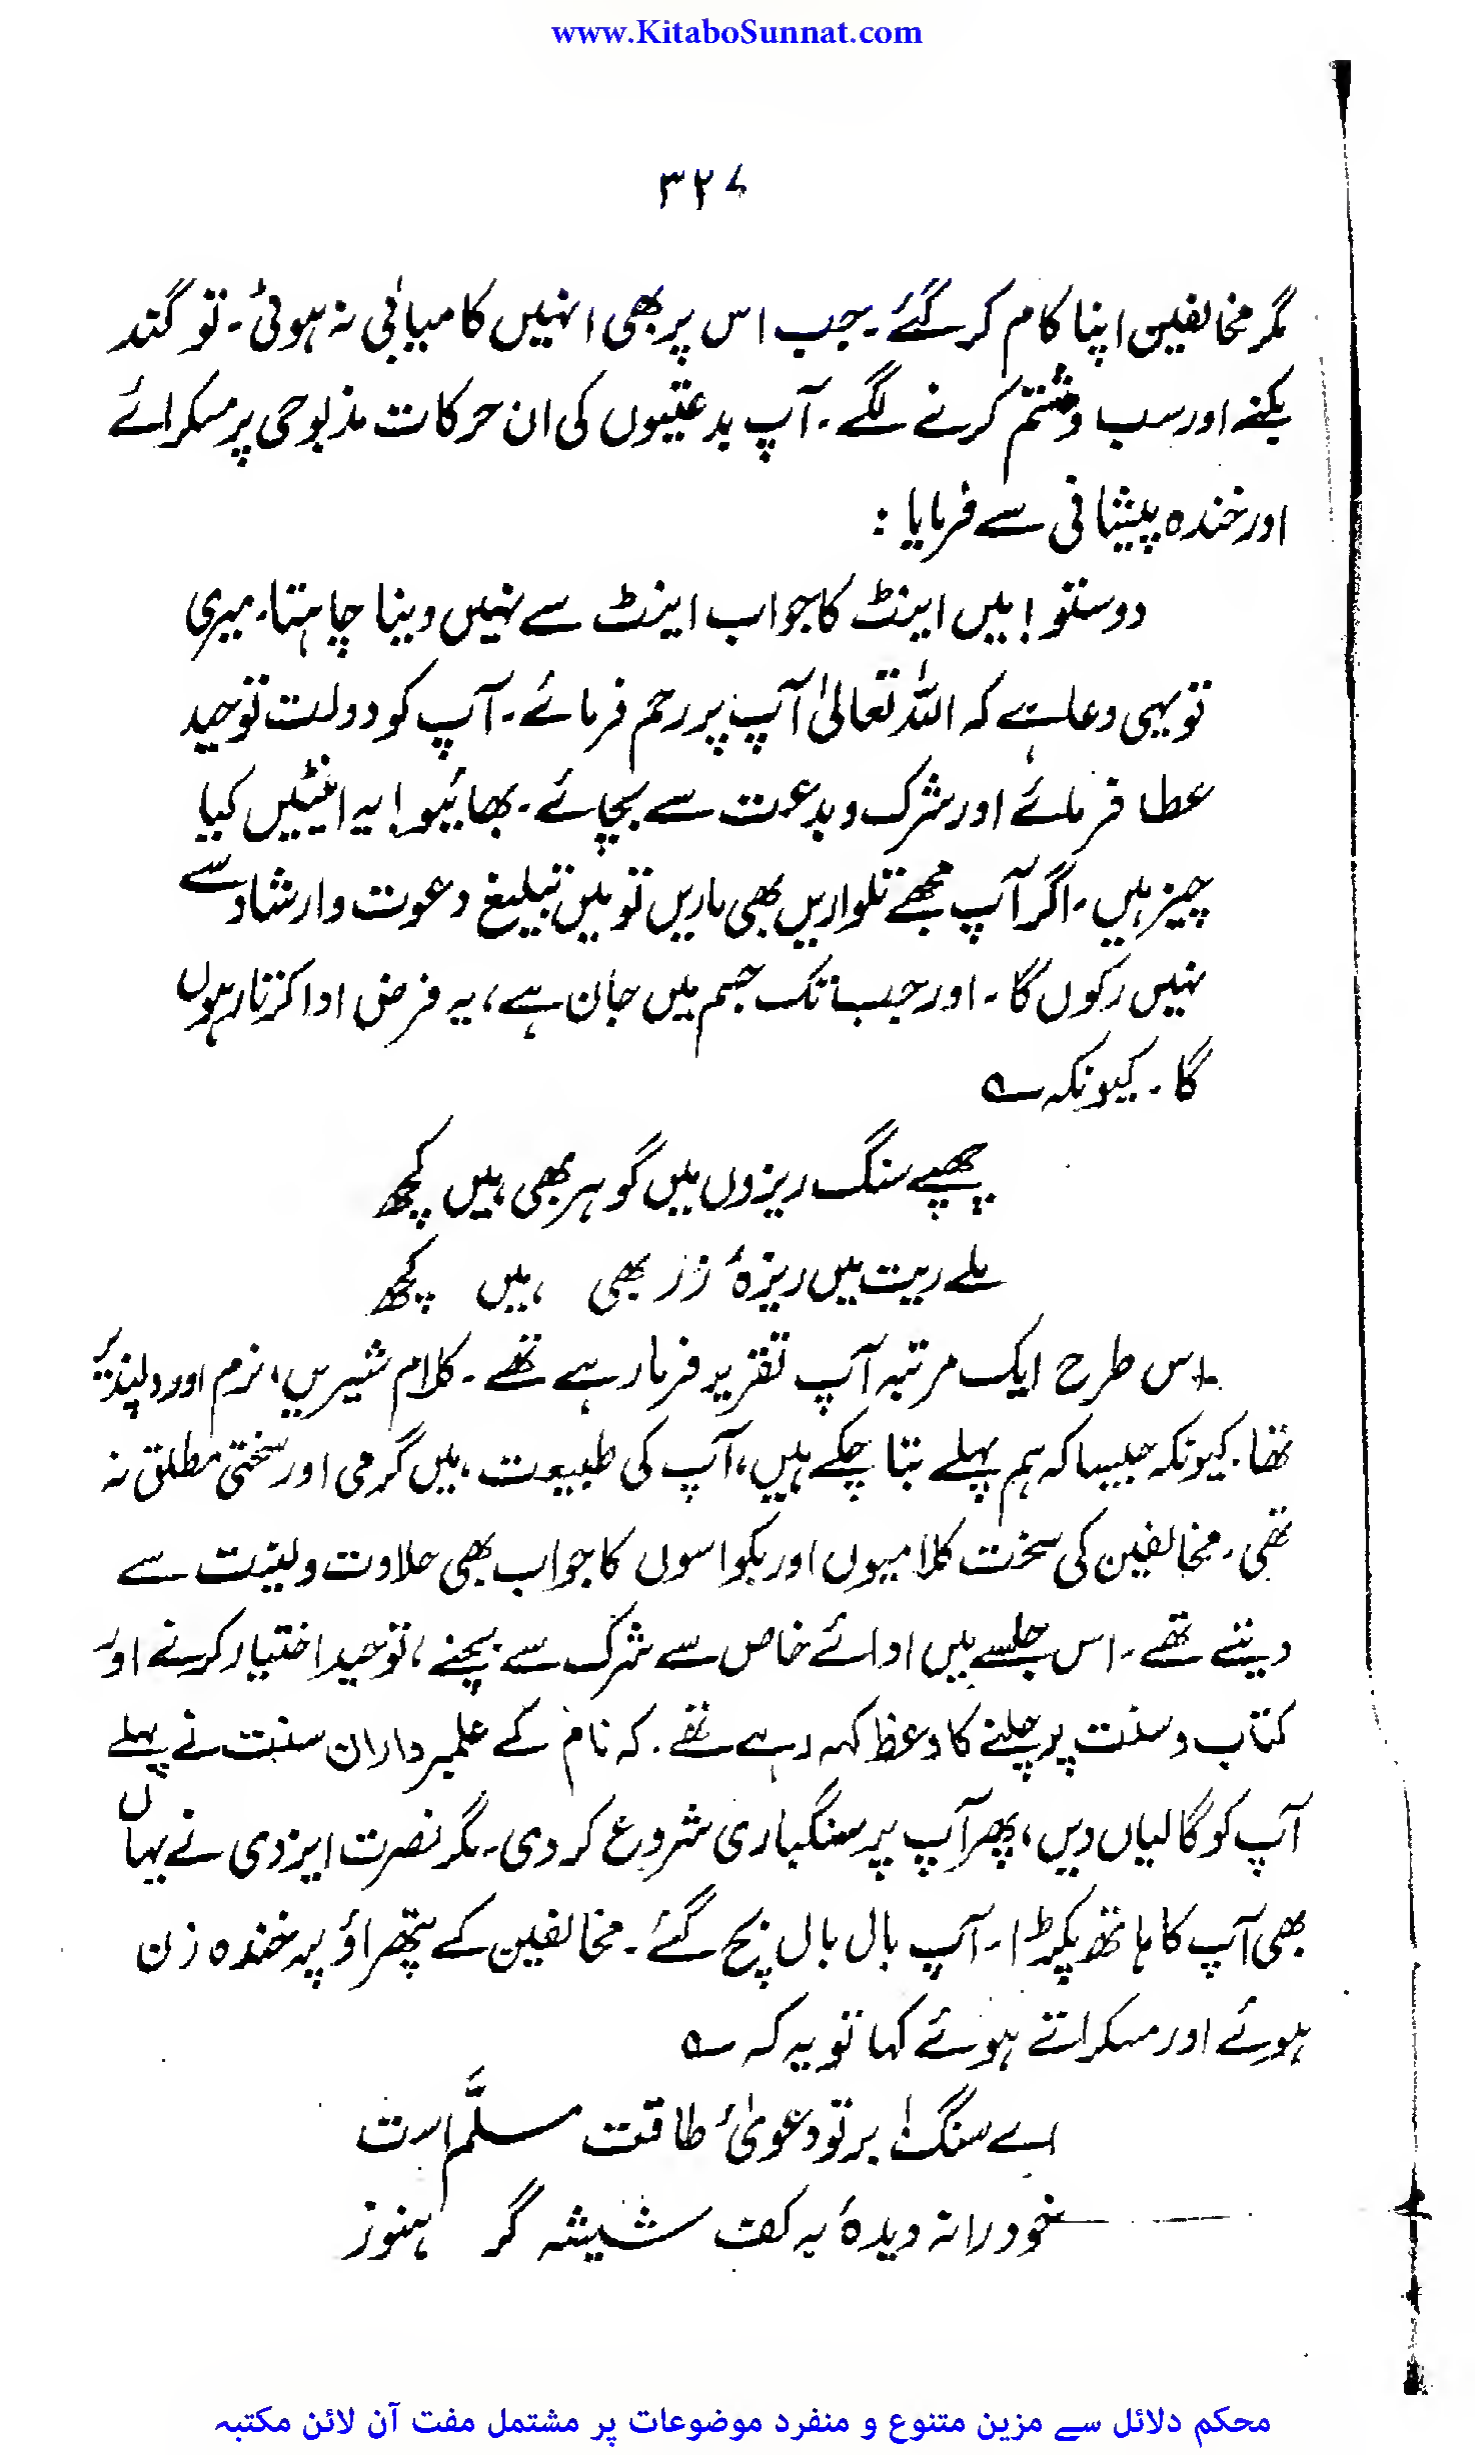 www.KitaboSunnat.com
۳۲۷
مگر مخالفین اپنا کام کر گئے۔ جب اس پر بھی انہیں کامیابی نہ ہوئی۔ تو گند
بکنے اور سب و شتم کرنے لگے۔ آپ بدعتیوں کی ان حرکات مذبوحی پر مسکرائے
اور خندہ پیشانی سے فرمایا :
دوستو! میں اینٹ کا جواب اینٹ سے نہیں دینا چاہتا۔ میری
تو یہی دعا ہے کہ اللہ تعالیٰ آپ پر رحم فرمائے۔ آپ کو دولت توحید
عطا فرمائے اور شرک و بدعت سے بچائے۔ بھائیو! یہ اینٹیں کیا
چیز ہیں۔ اگر آپ مجھے تلواریں بھی ماریں تو میں تبلیغ دعوت و ارشاد سے
نہیں رکوں گا۔ اور جب تک جسم میں جان ہے، یہ فرض ادا کرتا رہوں
گا۔ کیونکہ ؎
چھپے سنگ ریزوں میں گوہر بھی ہیں کچھ
ملے ریت میں ریزۂ زر بھی ہیں کچھ
اس طرح ایک مرتبہ آپ تقریر فرما رہے تھے۔ کلام شیریں، نرم اور دلپذیر
تھا۔ کیونکہ جیسا کہ ہم پہلے بتا چکے ہیں، آپ کی طبیعت میں گرمی اور سختی مطلق نہ
تھی۔ مخالفین کی سخت کلامیوں اور بکواسوں کا جواب بھی حلاوت و لینت سے
دیتے تھے۔ اس جلسے میں ادائے خاص سے شرک سے بچنے، توحید اختیار کرنے اور
کتاب و سنت پر چلنے کا وعظ کہہ رہے تھے۔ کہ نام کے علمبرداران سنت نے پہلے
آپ کو گالیاں دیں، پھر آپ پر سنگباری شروع کر دی۔ مگر نصرت ایزدی نے یہاں
بھی آپ کا ہاتھ پکڑا۔ آپ بال بال بچ گئے۔ مخالفین کے پتھراؤ پہ خندہ زن
ہوئے اور مسکراتے ہوئے کہا تو یہ کہ ؎
اے سنگ! بر تو دعویٰٔ طاقت مسلَّم است
خود را نہ دیدۂ بہ کف شیشہ گر ہنوز
محکم دلائل سے مزین متنوع و منفرد موضوعات پر مشتمل مفت آن لائن مکتبہ